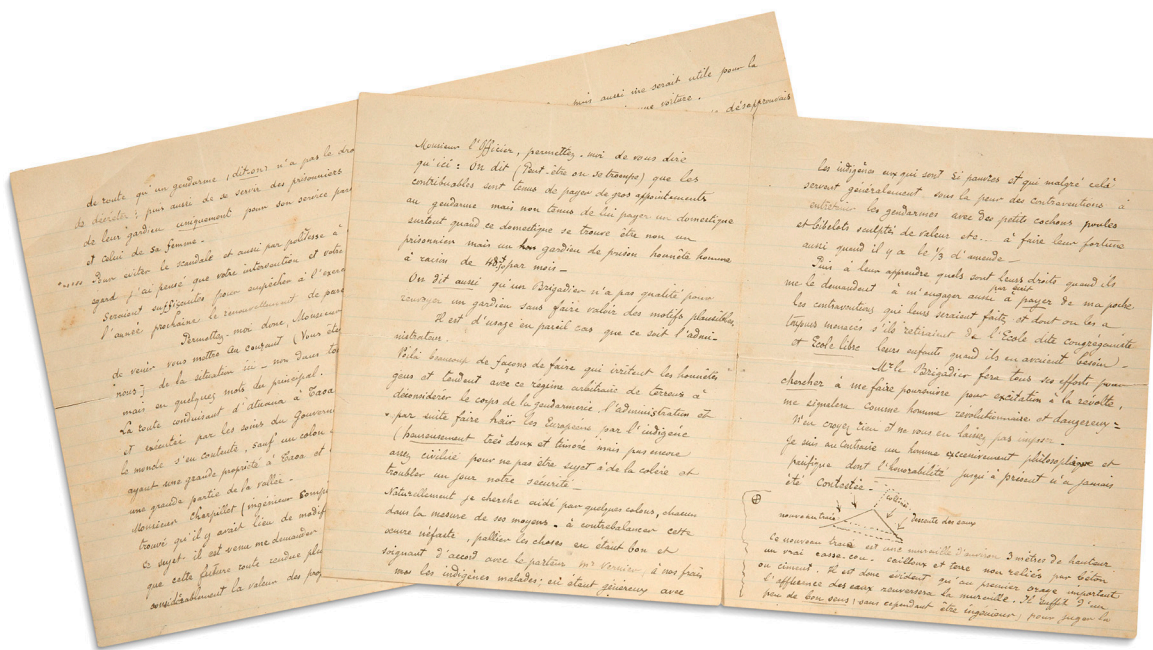 mais aussi
serait utile pour la
une voiture.
désapprouvais
de route qu'un gendarme (dit-on) n'a pas le dro
de décréter; puis aussi de se servir des prisonniers
de leur gardien uniquement pour son service par
et celui de sa femme.
Pour éviter le scandale et aussi par politesse à
égard j'ai pensé que votre intervention et votre
seraient suffisantes pour empêcher à l'exerc
l'année prochaine le renouvellement de pare
Permettez-moi donc, Monsieur
de venir vous mettre au courant (Vous êtes
nous) de la situation ici - non dans to
mais en quelques mots du principal.
La route conduisant d'atuana à Taoa
et exécutée par les soins du Gouvern
le monde s'en contente, sauf un colon
ayant une grande propriété à Taoa et
une grande partie de la vallée -
Monsieur Charpillet (ingénieur comp
trouva qu'il y avait lieu de modif
ce sujet il est venu me demander
que cette future route rendue pla
considérablement la valeur des pro
Monsieur l'Officier, permettez-moi de vous dire
qu'ici: On dit (Peut-être on se trompe) que les
contribuables sont tenus de payer de gros appointements
au gendarme mais non tenus de lui payer un domestique
surtout quand ce domestique se trouve être non un
prisonnier mais un gardien de prison honnête homme
à raison de par mois -
On dit aussi qu'un Brigadier n'a pas qualité pour
renvoyer un gardien sans faire valoir des motifs plausibles,
Il est d'usage en pareil cas que ce soit l'admi-
nistrateur.
Voilà beaucoup de façons de faire qui irritent les honnêtes
gens et tendent avec ce régime arbitraire de terreurs à
déconsidérer le corps de la gendarmerie, l'administration et
par suite faire haïr les Européens par l'indigène
(heureusement très doux et timoré mais pas encore
assez civilisé pour ne pas être sujet à de la colère et
troubler un jour notre sécurité.
Naturellement je cherche aidé par quelques colons, chacun
dans la mesure de ses moyens - à contrebalancer cette
œuvre néfaste, pallier les choses en étant bon et
soignant d'accord avec le pasteur Mr Vernier, à nos frais
tous les indigènes malades; en étant généreux avec
les indigènes eux qui sont si pauvres et qui malgré celà
servent généralement sous la peur des contraventions à
entretenir les gendarmes avec des petits cochons poules
et bibelots sculptés de valeur etc... à faire leur fortune
aussi quand il y a le 1/3 d'amende -
Puis à leur apprendre quels sont leurs droits quand ils
me le demandent à m'engager aussi par écrit à payer de ma poche
les contraventions qui leurs seraient faites et dont on les a
toujours menacés s'ils retiraient de l'Ecole dite congréganiste
et Ecole libre leurs enfants quand ils en avaient besoin -
Mr le Brigadier fera tous ses efforts pour
chercher à me faire poursuivre pour excitation à la révolte,
me signalera comme homme révolutionnaire et dangereux =
N'en croyez rien et ne vous en laissez pas imposer -
Je suis au contraire un homme excessivement philosophique et
pacifique dont l'honorabilité jusqu'à présent n'a jamais
été contestée -
colline
nouveau tracé
descente des eaux
Ce nouveau tracé est une muraille d'environ 3 mètres de hauteur
un vrai casse-cou - cailloux et terre non reliés par béton
ou ciment. Il est donc évident qu'au premier orage important
l'affluence des eaux renversera la muraille. Il suffit d'un
peu de bon sens, sans cependant être ingénieur, pour juger la